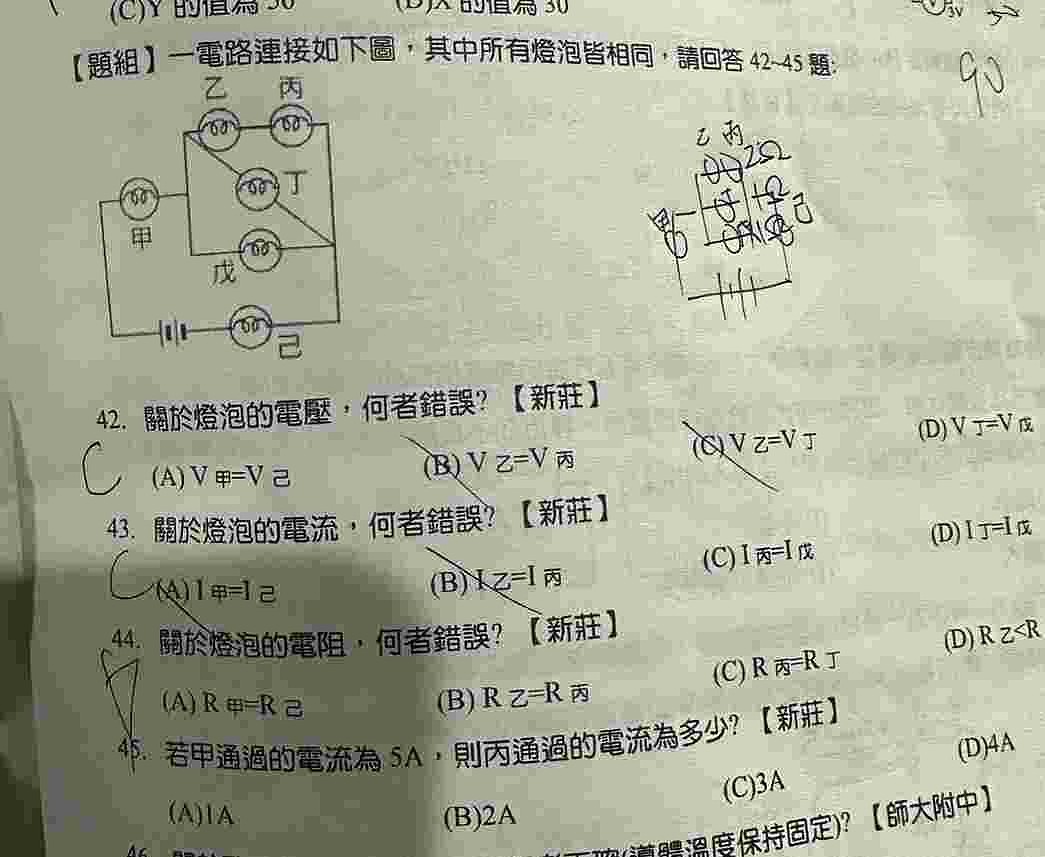 (C)Y 的值為 50 (D)X 的值為 30
【題組】一電路連接如下圖，其中所有燈泡皆相同，請回答 42~45 題:
90
乙 丙
丁
甲
戊
己
乙 丙
2Ω
1Ω
甲
己
42. 關於燈泡的電壓，何者錯誤? 【新莊】
C (A) V 甲=V 己 (B) V 乙=V 丙 (C) V 乙=V 丁 (D) V 丁=V 戊
43. 關於燈泡的電流，何者錯誤? 【新莊】
C (A) I 甲=I 己 (B) I 乙=I 丙 (C) I 丙=I 戊 (D) I 丁=I 戊
44. 關於燈泡的電阻，何者錯誤? 【新莊】
(A) R 甲=R 己 (B) R 乙=R 丙 (C) R 丙=R 丁 (D) R 乙<R
45. 若甲通過的電流為 5A，則丙通過的電流為多少? 【新莊】
(A)1A (B)2A (C)3A (D)4A
46. (導體溫度保持固定)? 【師大附中】